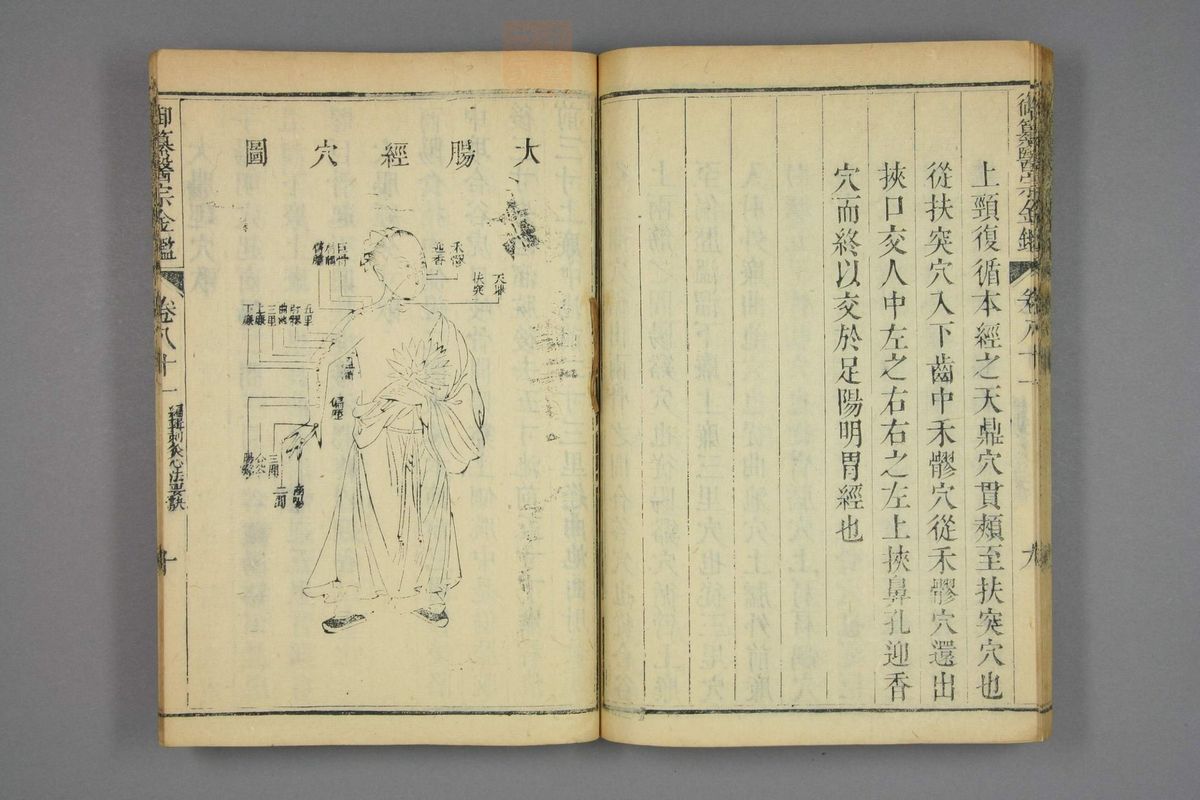 御纂醫宗金鑑
卷八十一
九
上頸復循本經之天鼎穴貫頰至扶突穴也
從扶突穴入下齒中禾髎穴從禾髎穴還出
挾口交人中左之右右之左上挾鼻孔迎香
穴而終以交於足陽明胃經也
大腸經穴圖
禾髎
迎香
天鼎
扶突
巨骨
五里
肘髎
曲池
三里
上廉
下廉
偏歷
三間
二間
商陽
御纂醫宗金鑑
卷八十一
編輯刺灸心法要訣
十